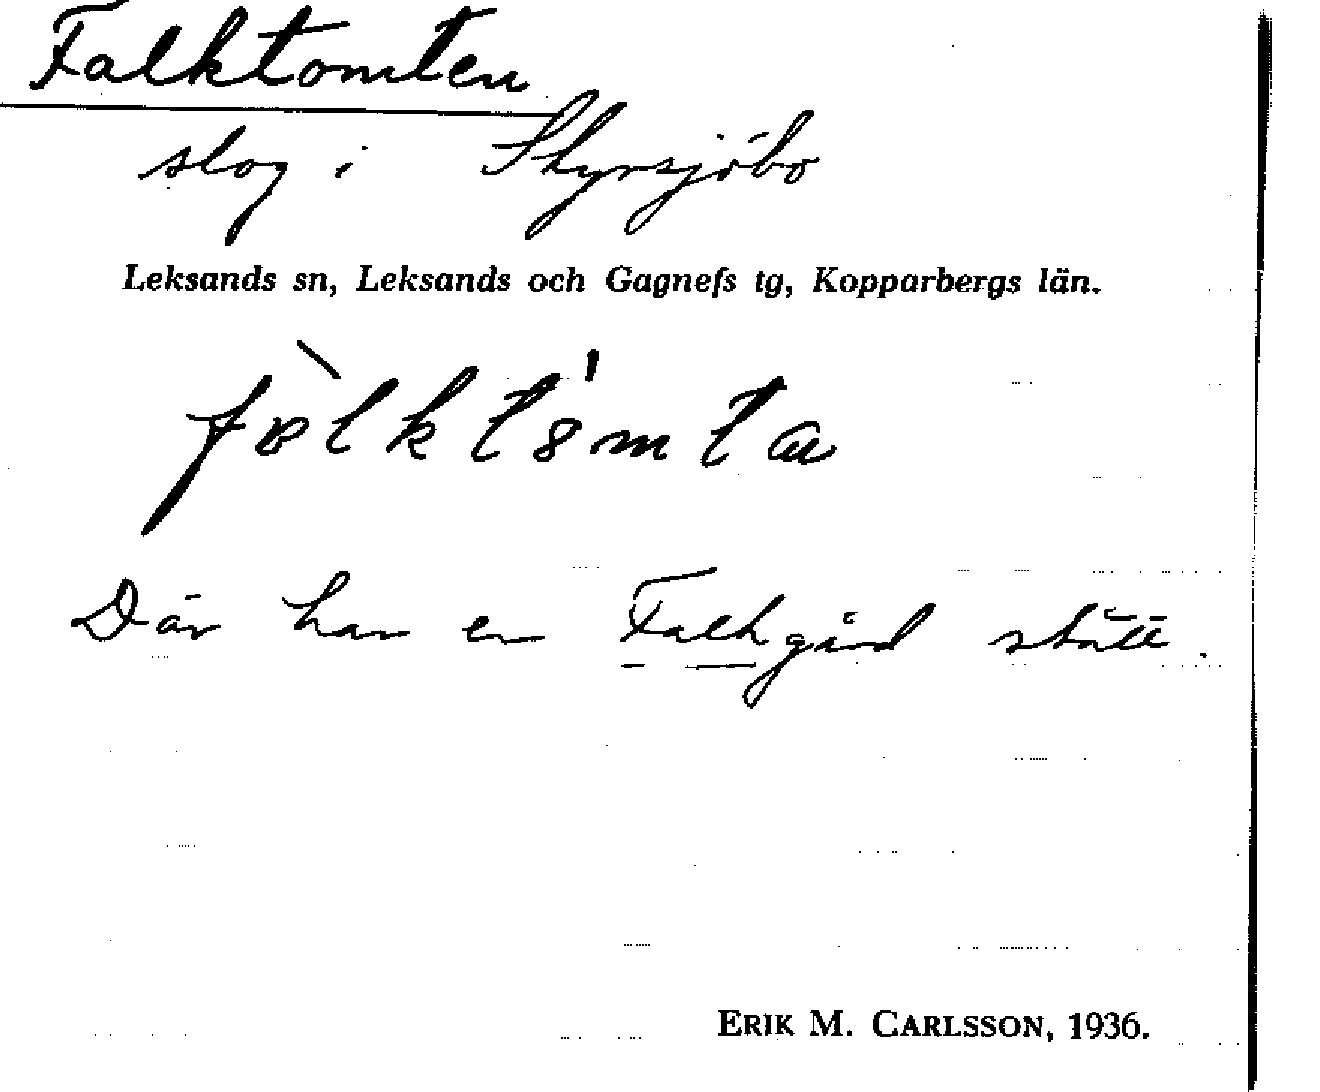 Falktomten
slog i Styrsjöbo
Leksands sn, Leksands och Gagnefs tg, Kopparbergs län.
Där har en Falkgård stått.
ERIK M. CARLSSON, 1936.